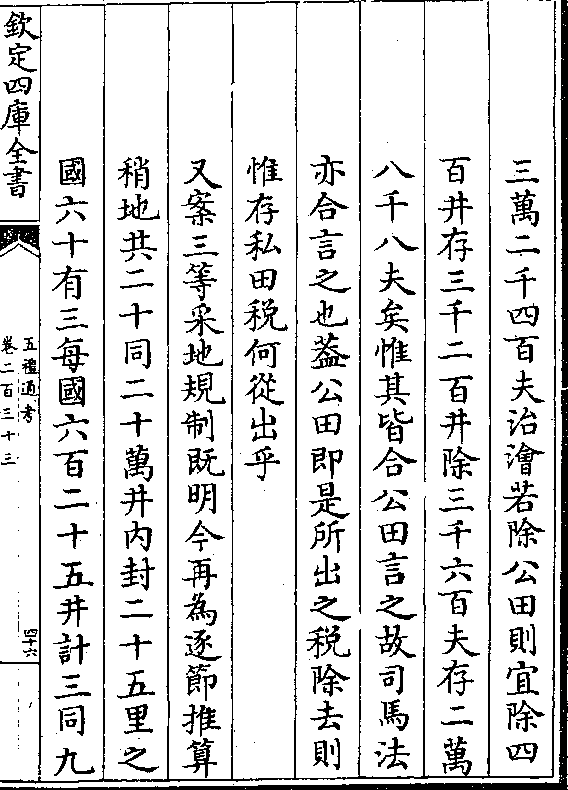 三萬二千四百夫治澮若除公田則宜除四
百井存三千二百井除三千六百夫存二萬
八千八夫矣惟其皆合公田言之故司馬法
亦合言之也葢公田即是所出之稅除去則
惟存私田稅何從出乎
又案三等采地規制既明今再為逐節推算
稍地共二十同二十萬井內封二十五里之
國六十有三每國六百二十五井計三同九
欽定四庫全書
五禮通考
卷二百三十三
四十六